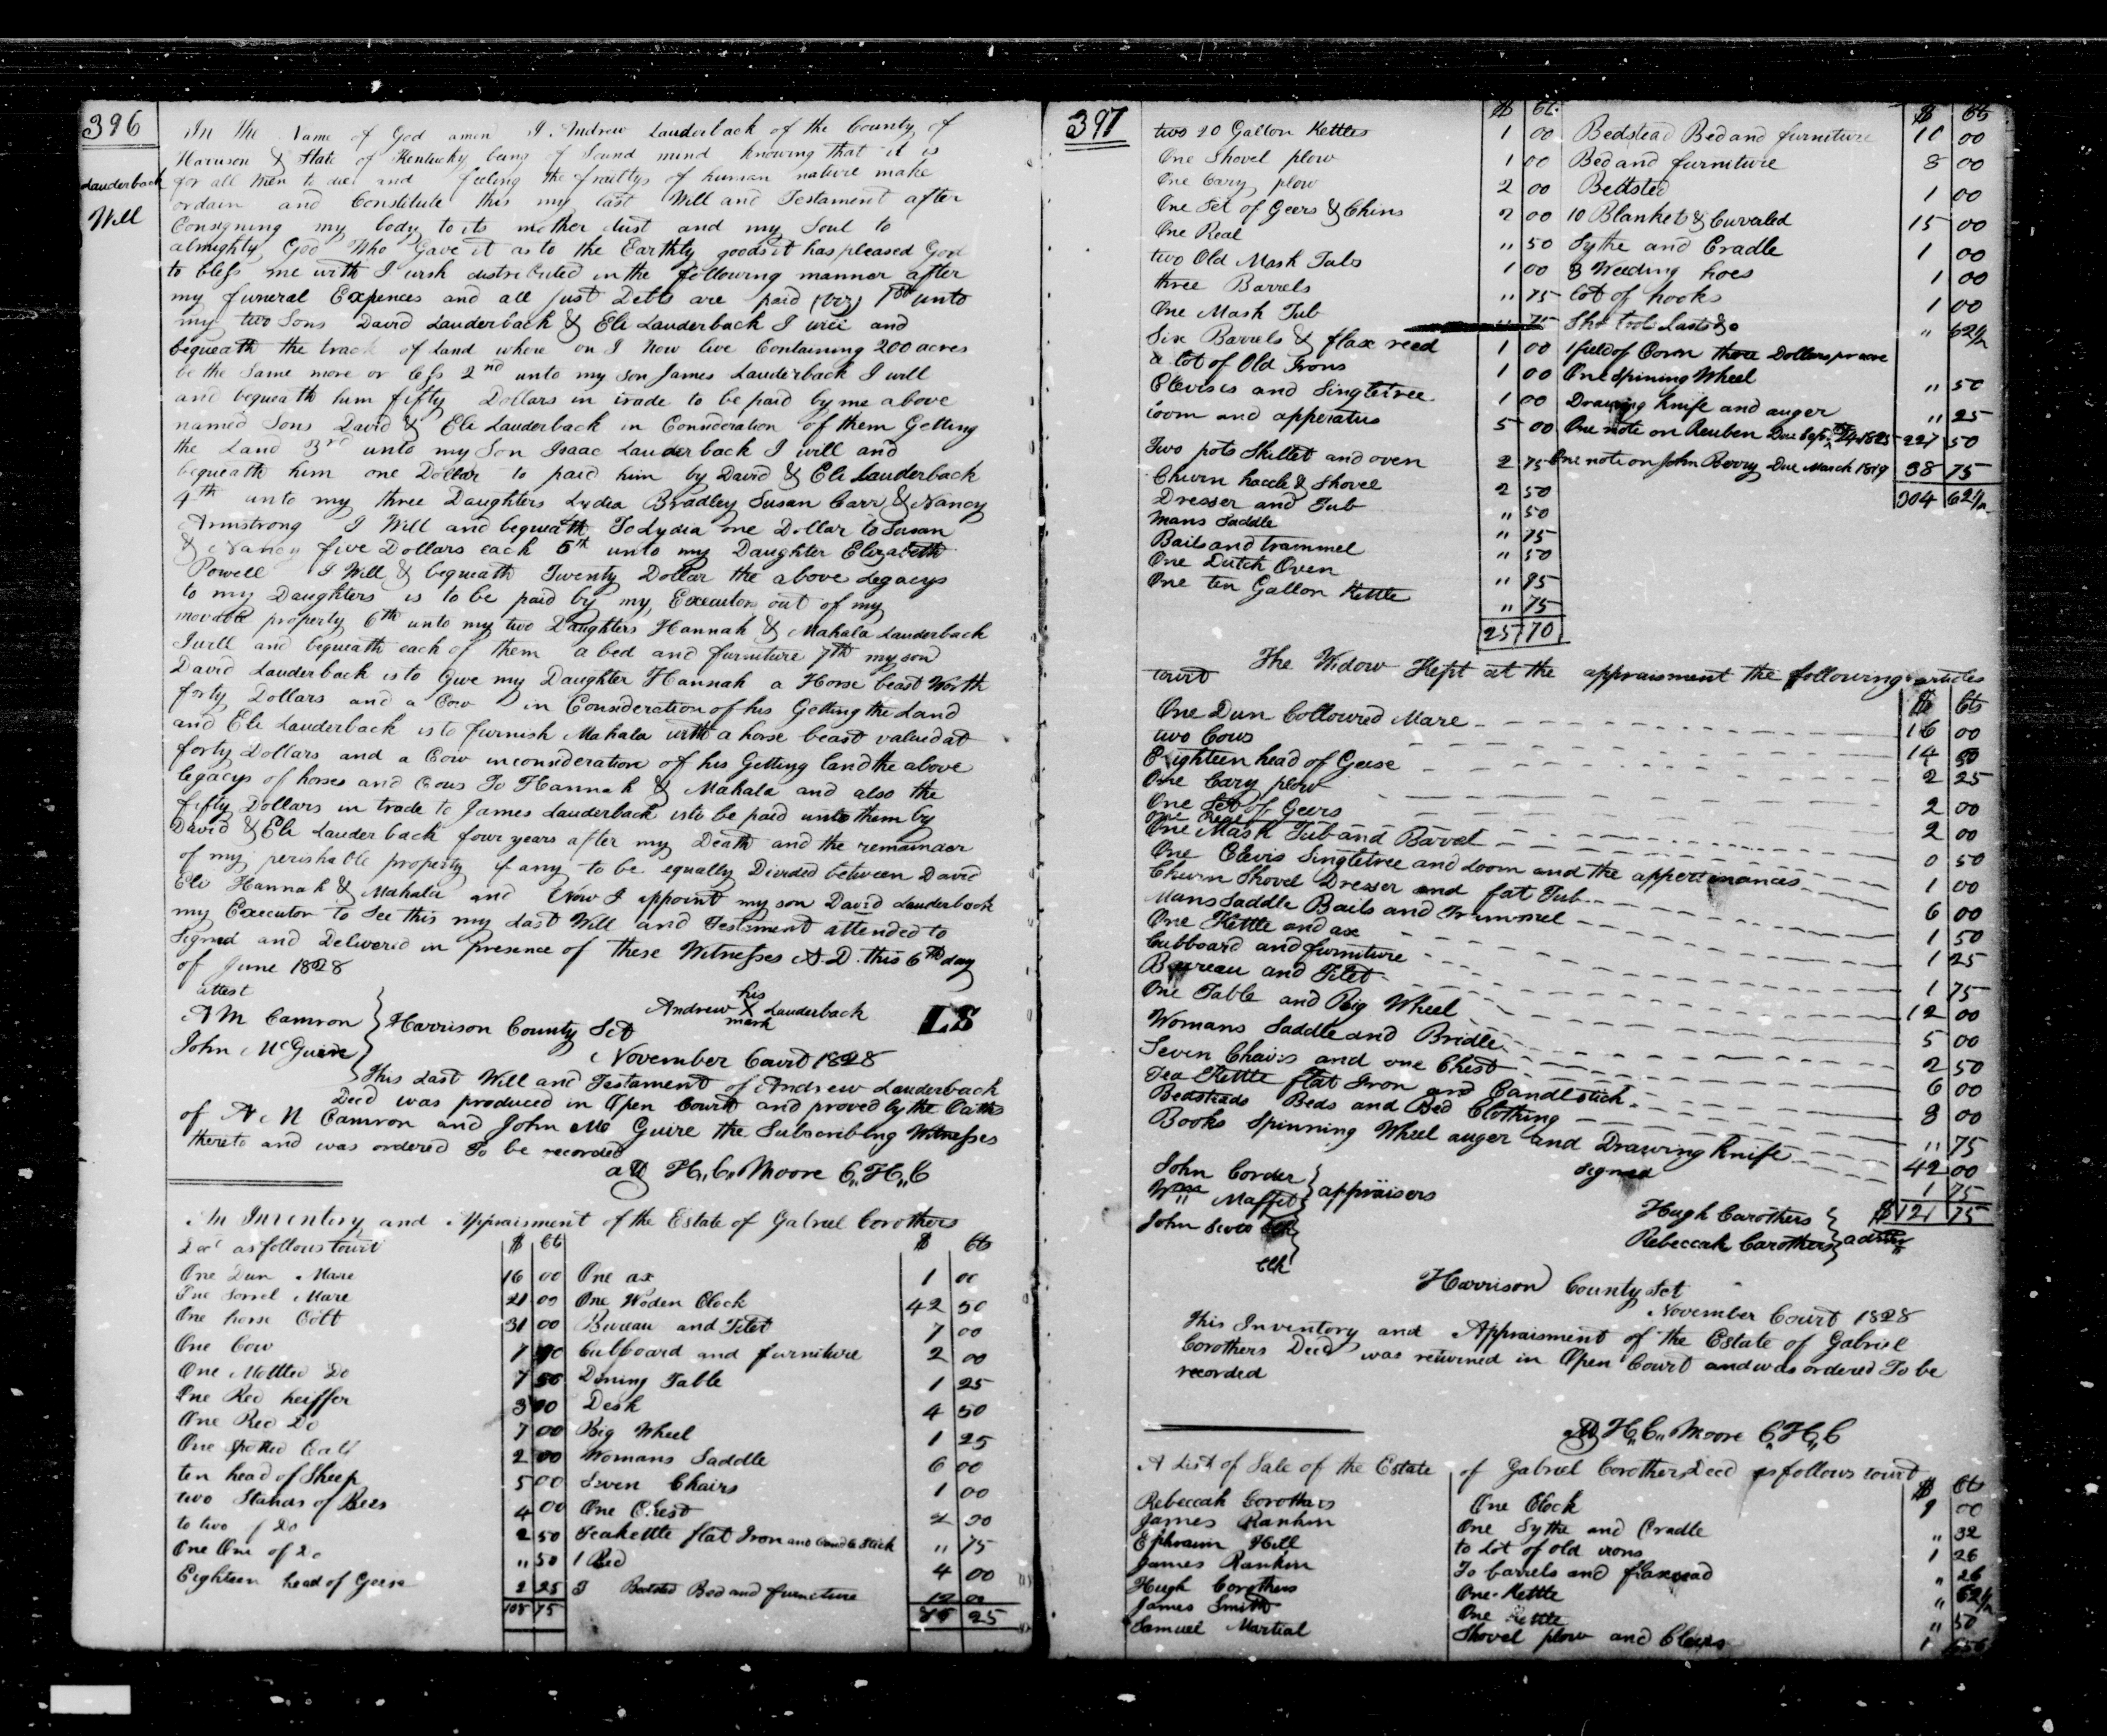 396
Lauderback
Will
In the Name of God amen I Andrew Lauderback of the County of
Harrison & State of Kentucky being of Sound mind knowing that it is
for all Men to die and feeling the frailtys of human nature make
ordain and Constitute this my last Will and Testament after
Consigning my body to its mother dust and my Soul to
almighty God Who Gave it as to the Earthly goods it has pleased God
to bless me with I wish distributed in the following manner after
my funeral Expences and all just Debts are paid (viz) 1st unto
my two Sons David Lauderback & Eli Lauderback I will and
bequeath the track of Land where on I Now live Containing 200 acres
be the Same more or less 2nd unto my son James Lauderback I will
and bequeath him fifty Dollars in trade to be paid by me above
named Sons David & Eli Lauderback in Consideration of them Getting
the Land 3rd unto my Son Isaac Lauderback I will and
bequeath him one Dollar to paid him by David & Eli Lauderback
4th unto my three Daughters Lydia Bradley Susan Carr & Nancy
Armstrong I Will and bequeath To Lydia one Dollar to Susan
& Nancy five Dollars each 5th unto my Daughter Elizabeth
Powell I Will & bequeath Twenty Dollar the above Legacys
to my Daughters is to be paid by my Executors out of my
movable property 6th unto my two Daughters Hannah & Mahala Lauderback
I will and bequeath each of them a bed and furniture 7th my son
David Lauderback is to Give my Daughter Hannah a Horse beast Worth
forty Dollars and a Cow in Consideration of his Getting the Land
and Eli Lauderback is to furnish Mahala with a horse beast valued at
forty Dollars and a Cow in consideration of his Getting land the above
legacys of horses and Cows To Hannah & Mahala and also the
fifty Dollars in trade to James Lauderback is to be paid unto them by
David & Eli Lauderback four years after my Death and the remainder
of my perishable property if any to be equally Divided between David
Eli Hannah & Mahala and Now I appoint my son David Lauderback
my Executor to See this my Last Will and Testament attended to
Signed and Delivered in presence of these Witnesses A.D. this 6th day
of June 1828
attest
A M Camron
John McGuire
his
Andrew X Lauderback LS
mark
Harrison County Sct
November Court 1828
This Last Will and Testament of Andrew Lauderback
Decd was produced in Open Court and proved by the Oaths
of A M Camron and John Mc Guire the Subscribing Witnesses
thereto and was ordered To be recorded
att H,,C,, Moore C,,H,,C
An Inventory and Appraisment of the Estate of Gabriel Corothers
Decd as follows towit $ Ct $ Cts
One Dun Mare 16 00 One ax 1 00
One Sorrel Mare 21 00 One Woden Clock 42 50
One horse Colt 31 00 Bureau and Tilet 7 00
One Cow 7 Cubboard and furniture 2 00
One Mottled Do 7 50 Dining Table 1 25
One Red heiffer 3 00 Desk 4 50
One Red Do 7 00 Big Wheel 1 25
One Spotted Calf 2 00 Womans Saddle 6 00
ten head of Sheep 5 00 Seven Chairs 1 00
two Stands of Bees 4 00 One Chest 2 00
to two of Do 2 50 Teakettle flat Iron and Candle Stick ,, 75
One One of Do ,, 50 1 Bed 4 00
Eighteen head of Geese 2 25 Bedsted Bed and furniture 12 00
108 75 25
397
$ Ct. $ Cts
two 20 Gallon Kettles 1 00 Bedstead Bed and furniture 10 00
One Shovel plow 1 00 Bed and furniture 8 00
One Cary plow 2 00 Bettsted 1 00
One Set of Geers & Chins 2 00 10 Blankets & Cuvaled 15 00
One Real ,, 50 Sythe and Cradle 1 00
two Old Mash Tubs 1 00 3 Weeding hoes 1 00
three Barrels ,, 75 lot of hooks 1 00
One Mash Tub ,, 75 Sho tools Lasts &c ,, 62½
Six Barrels & flax reed 1 00 1 field of Corn three Dollars pr acre
a lot of Old Irons 1 00 One Spining Wheel ,, 50
Clevises and Singletree 1 00 Drawing Knife and auger ,, 25
loom and apperatus 5 00 One note on Reuben Due Sept 24 1825 227 50
Two pots Skillet and oven 2 75 One note on John Berry Due March 1819 38 75
Churn hackle & Shovel 2 50 304 62½
Dresser and Tub ,, 50
Mans Saddle ,, 75
Bails and trammel ,, 50
One Dutch Oven ,, 95
One ten Gallon Kettle ,, 75
25 70
The Widow Kept at the appraisment the following articles
towit $ Cts
One Dun Colloured Mare 16 00
two Cows 14 50
Eighteen head of Geese 2 25
One Cary plow 2 00
One Set of Geers 2 00
One Real 0 50
One Mash Tub and Barrel 1 00
One Clevis Singletree and Loom and the appertinances 6 00
Churn Shovel Dresser and fat Tub 1 50
Mans Saddle Bails and Trammel 1 25
One Kettle and ax 1 75
Cubboard and furniture 12 00
Bureau and Tilet 5 00
One Table and Big Wheel 2 50
Womans Saddle and Bridle 6 00
Seven Chairs and one Chest 3 00
Tea Kettle flat Iron and Candlestick ,, 75
Bedsteads Beds and Bed Clothing 42 00
Books Spinning Wheel auger and Drawing Knife 1 75
$121 75
John Corder
Wm Maffet appraisers
John
Clk
Signed
Hugh Carothers
Rebeccah Carothers admr
Harrison County Sct
November Court 1828
This Inventory and Appraisment of the Estate of Gabriel
Corothers Decd was returned in Open Court and was ordered To be
recorded
att H,,C,, Moore C,,H,,C
A List of Sale of the Estate of Gabriel Corothers Decd as follows towit
$ Cts
Rebeccah Corothers One Clock 9 00
James Rankin One Sythe and Cradle ,, 32
Ephraim Hill to Lot of old irons 1 26
James Rankin To barrels and flaxseed ,, 26
Hugh Corothers One Kettle ,, 62½
James Smith One Kettle ,, 50
Samuel Martial Shovel plow and Clevis 1